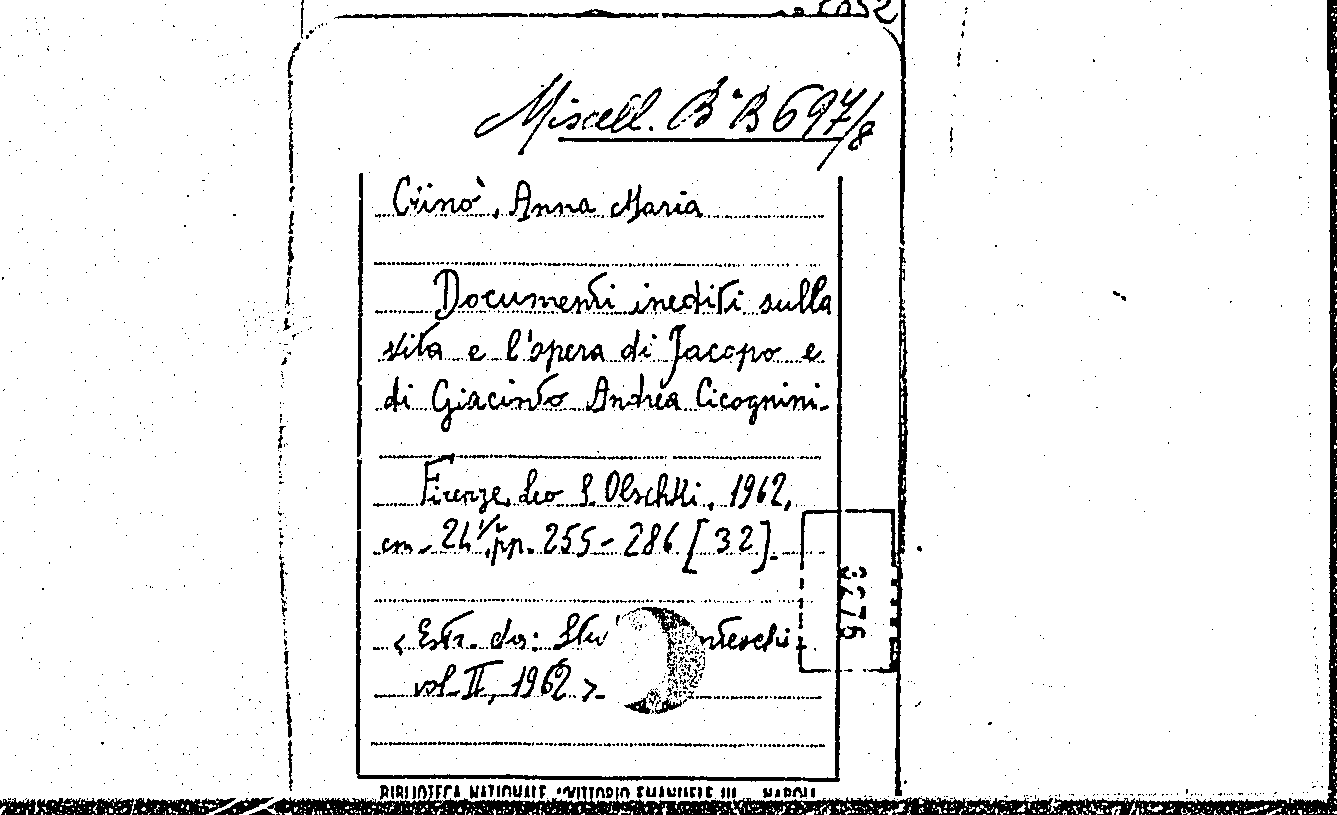 Miscell. B*B 697/8
Crinò, Anna Maria
Documenti inediti sulla
vita e l'opera di Jacopo e
di Giacinto Andrea Cicognini.
Firenze, Leo S. Olschki, 1962,
cm. 24½, pp. 255-286 [32].
<Estr. da: Stu nteschi.
vol. II, 1962>.
9276
BIBLIOTECA NAZIONALE "VITTORIO EMANUELE III" NAPOLI